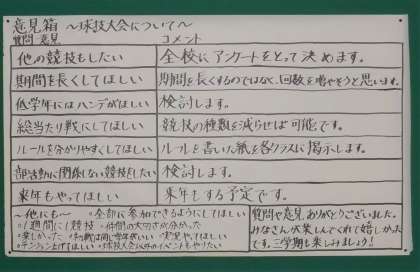 意見箱 ～球技大会について～
質問・意見 コメント
他の競技もしたい 全校にアンケートをとって決めます。
期間を長くしてほしい 期間を長くするのではなく、回数を増やそうと思います。
低学年にはハンデがほしい 検討します。
総当たり戦にしてほしい 競技の種類を減らせば可能です。
ルールを分かりやすくしてほしい ルールを書いた紙を各クラスに掲示します。
部活動に関係しない競技をしたい 検討します。
来年もやってほしい 来年もする予定です。
～他にも～ 全部に参加できるようにしてほしい
1週間に1競技 仲間の大切さが分かった
楽しかった
テンション上げてほしい 球技大会以外のイベントもやりたい
質問や意見ありがとうございました。
みなさんが楽しんでくれて嬉しかった
です。三学期も楽しみましょう！